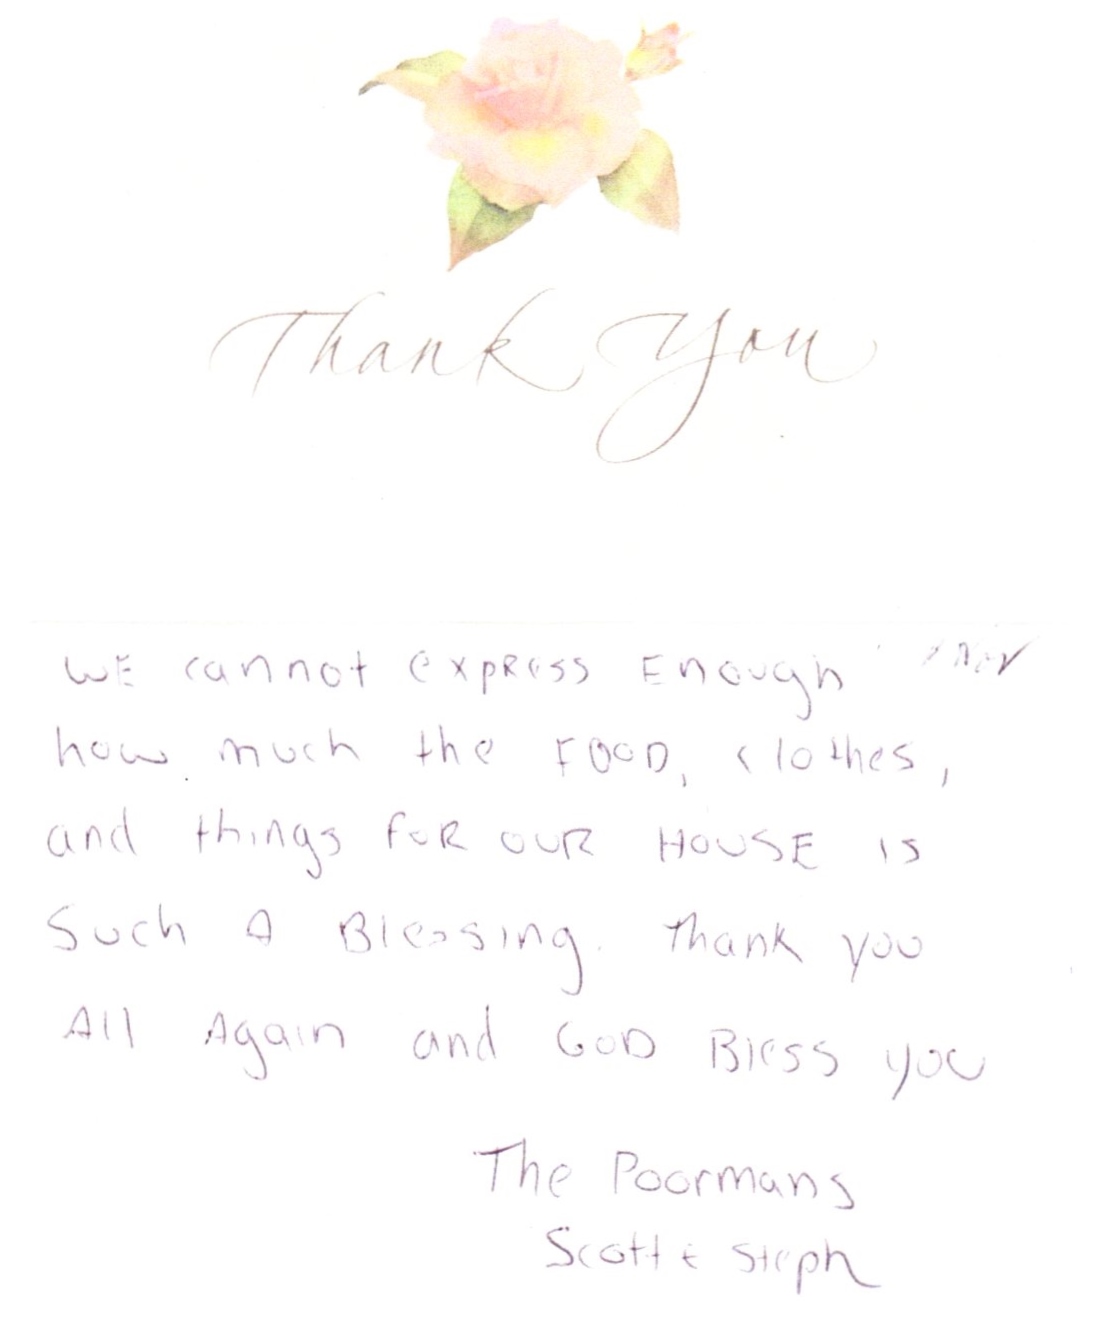 Thank You
WE cannot express Enough
how much the FOOD, clothes,
and things FOR OUR HOUSE is
Such A Blessing. Thank you
All Again and GOD Bless you
The Poormans
Scott & Steph